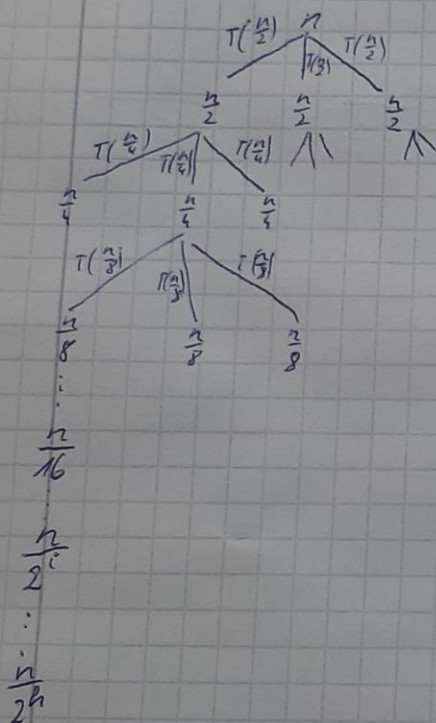 n
T(n/2) T(n/2) T(n/2)
n/2 n/2 n/2
T(n/4) T(n/4) T(n/4)
n/4 n/4 n/4
T(n/8) T(n/8) T(n/8)
n/8 n/8 n/8
⋮
n/16
n/2^i
⋮
n/2^h